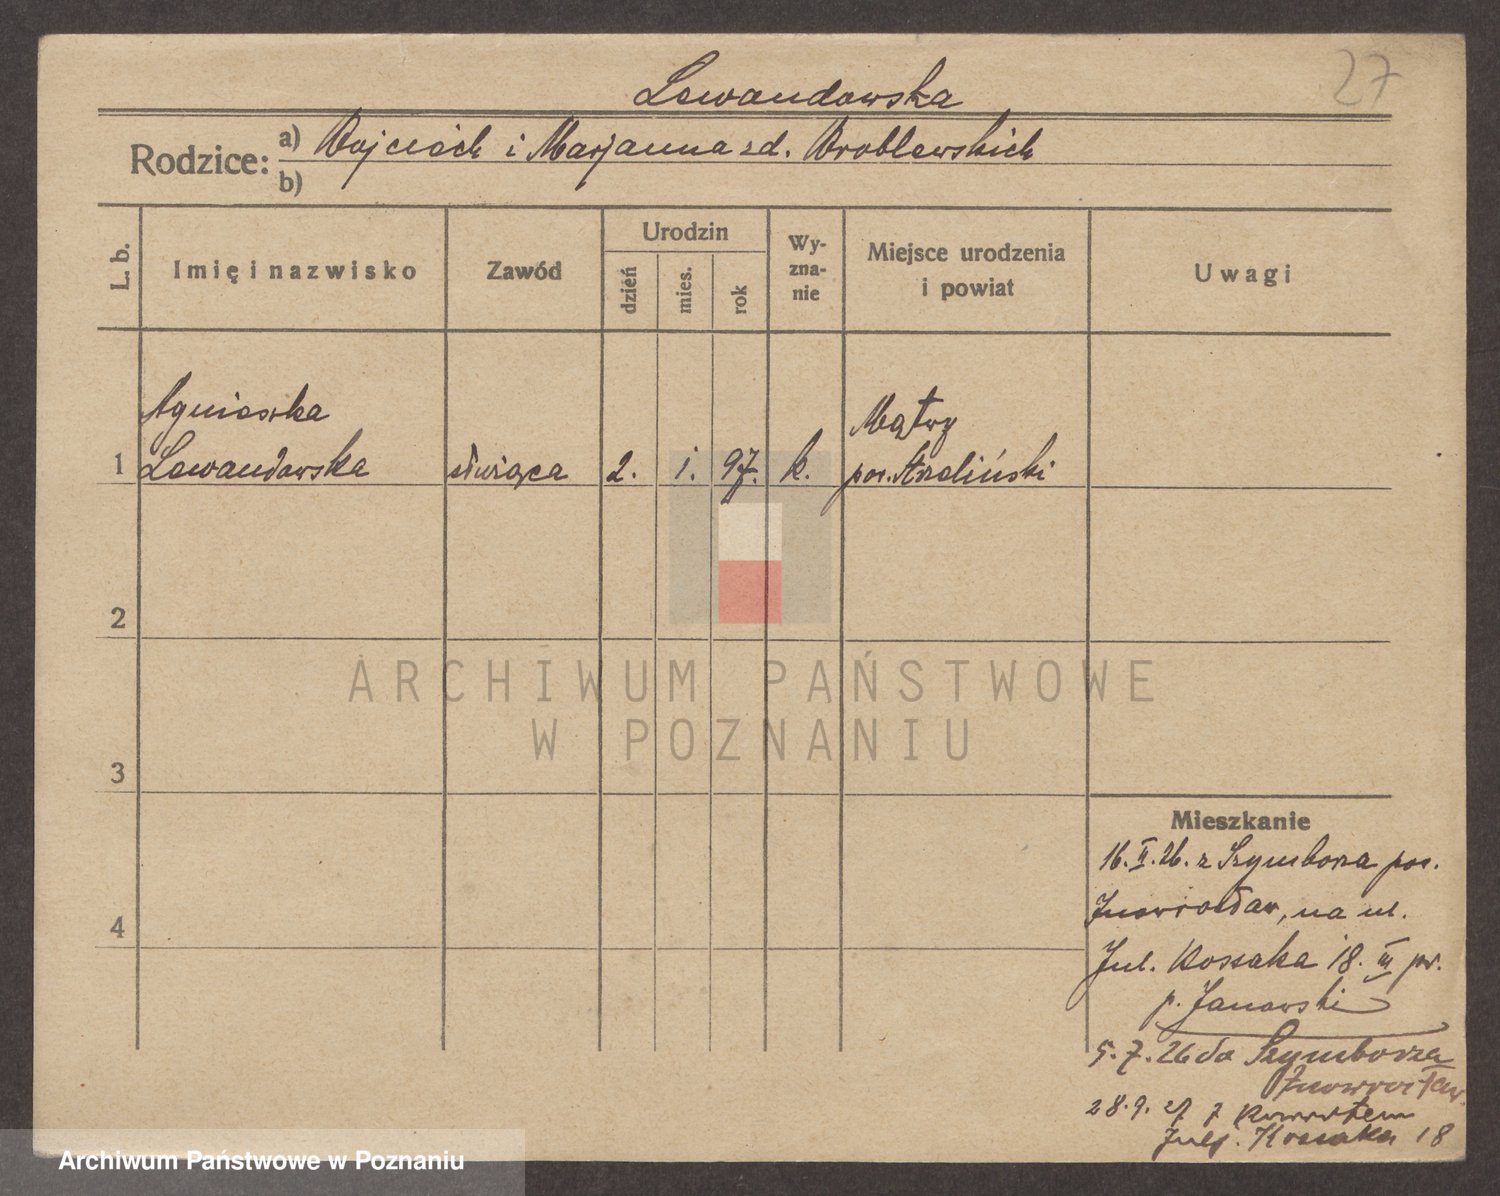 27
Lewandowska
Rodzice:
a) Wojciech i Marjanna z d. Wroblewskich
b)
L. b.
Imię i nazwisko
Zawód
Urodzin
dzień
mies.
rok
Wy-
zna-
nie
Miejsce urodzenia
i powiat
Uwagi
Agnieszka
Mątwy
1 Lewandowska służąca 2. 1. 97. k. pow. Strzeliński
2
ARCHIWUM PAŃSTWOWE
W POZNANIU
3
Mieszkanie
16. II. 26. z Szymborza pow.
Inowrocław, na ul.
4
Jul. Kossaka 18. III ptr.
p. Janowski
5. 7. 26 do Szymborza
Inowrocław
28. 9. 27 z
Julj. Kossaka 18
Archiwum Państwowe w Poznaniu